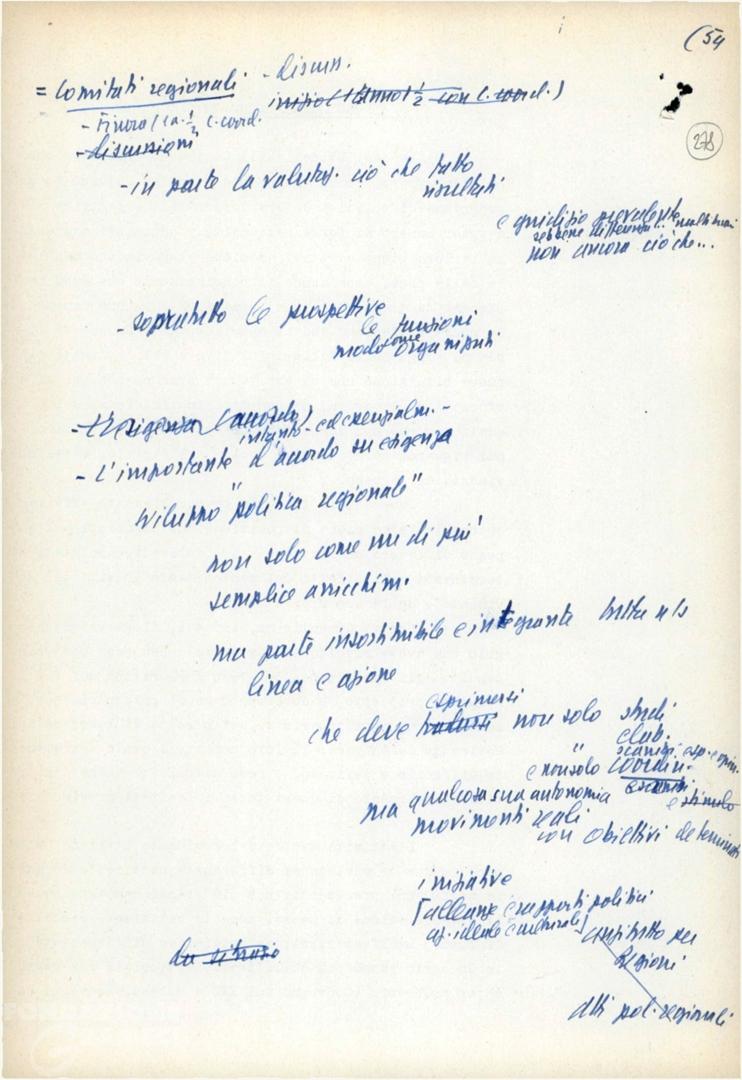 (54
278
= Comitati regionali - discuss.
inizio (1 anno 1/2 con C. coord.)
- Finora (1 a. 1/2 C. coord.
- discussioni
- in parte la valutaz. ciò che fatto
risultati
e giudizio prevalente
sebbene differenz...
non ancora ciò che...
- sopratutto le prospettive
le funzioni
modo come organizzati
- L'esigenza (accordo)
intanto - ed essenzialm. -
- L'importante d'accordo su esigenza
sviluppo "politica regionale"
non solo come un di più
semplice arricchim.
ma parte insostituibile e integrante tutta ns
linea e azione
esprimersi
che deve tradursi non solo studi
club.
scambi esp. e opin.
e non solo coordin.
e stimolo
ma qualcosa sua autonomia
movimenti reali
con obiettivi determinati
iniziative
[alleanze e rapporti politici
az. ideale e culturale]
anzitutto per
Regioni
da sitrario
altri pol. regionali
FONDAZIONE